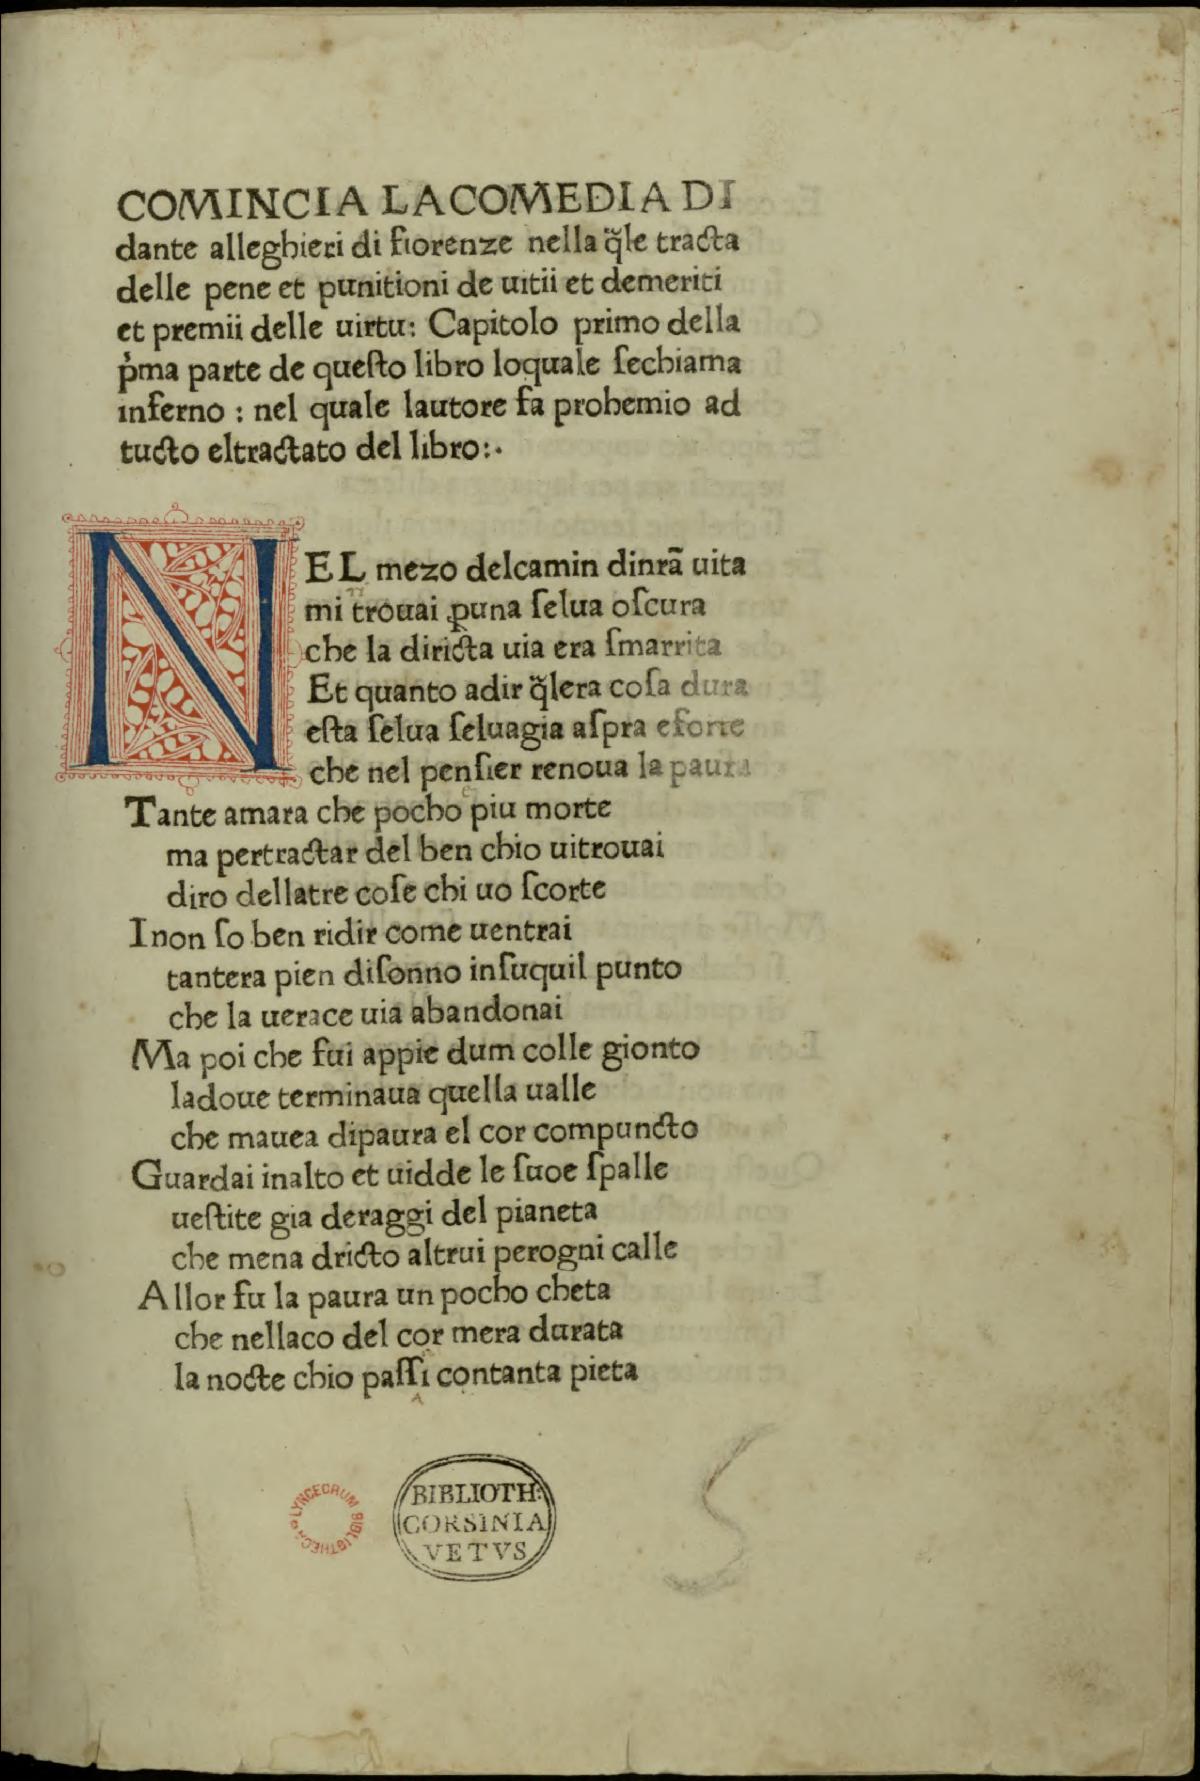 COMINCIA LACOMEDIA DI
dante alleghieri di fiorenze nella q̃le tracta
delle pene et punitioni de uitii et demeriti
et premii delle uirtu: Capitolo primo della
p̓ma parte de queſto libro loquale ſechiama
inferno : nel quale lautore fa prohemio ad
tucto eltractato del libro:·
NEL mezo delcamin dinrã uita
mi trouai ꝑuna ſelua oſcura
che la diricta uia era ſmarrita
Et quanto adir q̃lera coſa dura
eſta ſelua ſeluagia aſpra eforte
che nel penſier renoua la paura
Tante amara che pocho piu morte
ma pertractar del ben chio uitrouai
diro dellatre coſe chi uo ſcorte
Inon ſo ben ridir come uentrai
tantera pien diſonno inſuquil punto
che la uerace uia abandonai
Ma poi che fui appie dum colle gionto
ladoue terminaua quella ualle
che mauea dipaura el cor compuncto
Guardai inalto et uidde le ſuoe ſpalle
ueſtite gia deraggi del pianeta
che mena dricto altrui perogni calle
Allor fu la paura un pocho cheta
che nellaco del cor mera durata
la nocte chio paſſi contanta pieta
LYNCEORUM BIBLIOTHECA
BIBLIOTH:
CORSINIA
VETVS